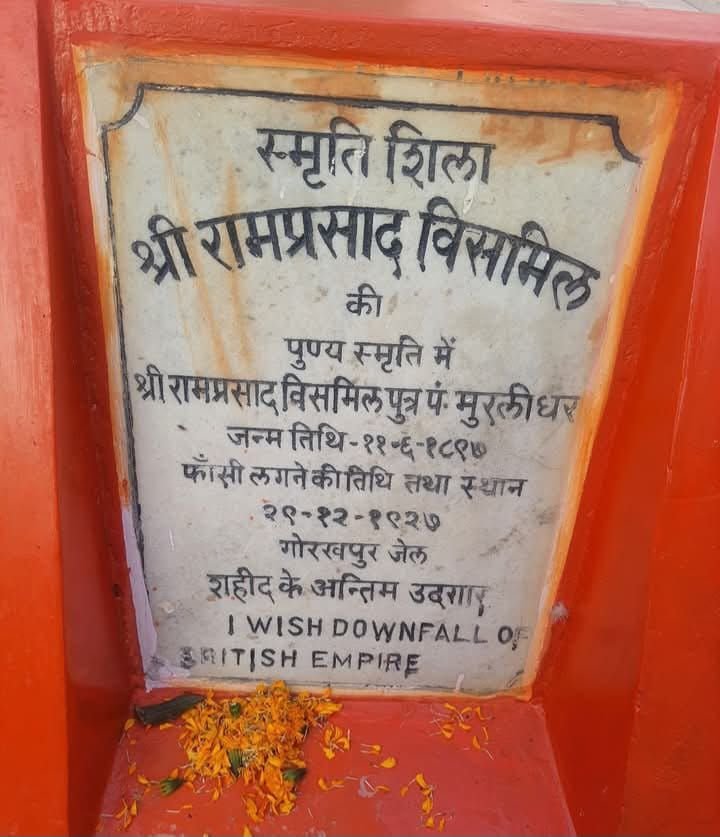 स्मृति शिला
श्री रामप्रसाद विसमिल
की
पुण्य स्मृति में
श्री रामप्रसाद विसमिल पुत्र पं. मुरलीधर
जन्म तिथि-११-६-१८९७
फाँसी लगने की तिथि तथा स्थान
२९-१२-१९२७
गोरखपुर जेल
शहीद के अन्तिम उदगार
I WISH DOWNFALL OF
BRITISH EMPIRE